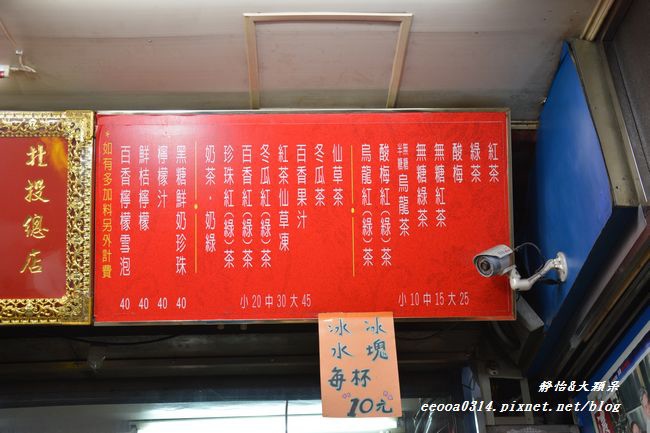 紅茶
綠茶
酸梅
無糖紅茶
無糖綠茶
無糖 半糖 烏龍茶
酸梅紅(綠)茶
烏龍紅(綠)茶
小10中15大25
仙草茶
冬瓜茶
百香果汁
紅茶仙草凍
冬瓜紅(綠)茶
百香紅(綠)茶
珍珠紅(綠)茶
奶茶．奶綠
小20中30大45
黑糖鮮奶珍珠 40
檸檬汁 40
鮮桔檸檬 40
百香檸檬雪泡 40
*如有多加料另外計費
北投總店
冰塊
冰水
每杯
"10元"
靜怡&大顆呆
eeooa0314.pixnet.net/blog